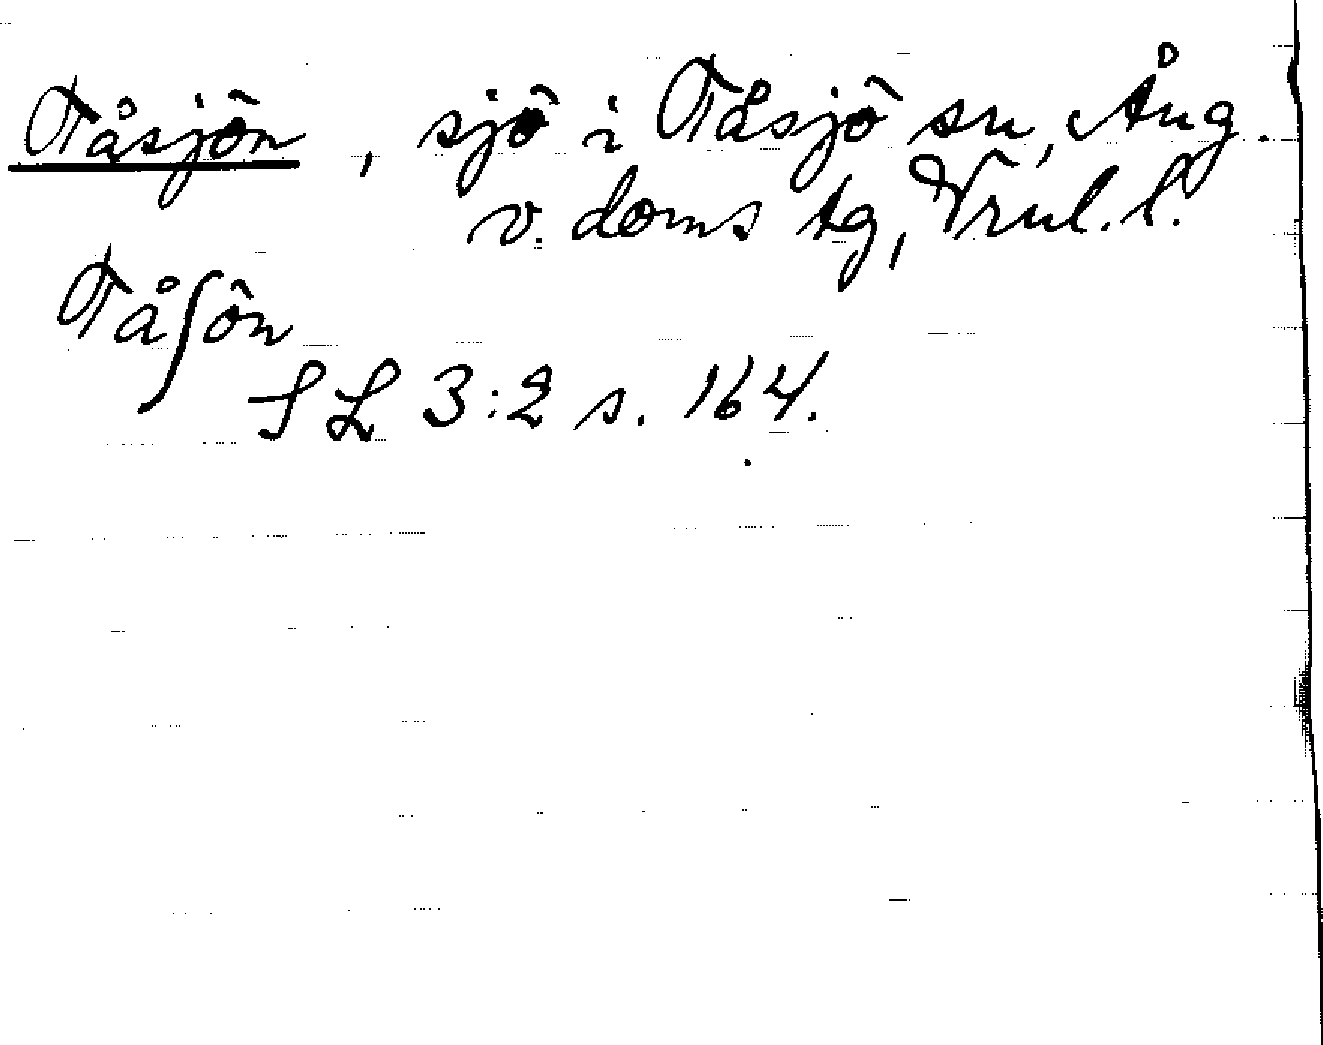 Tåsjön, sjö i Tåsjö sn, Ång.
v. doms tg, Vrnl. l.
Tåʃön
SL 3:2 s. 164.